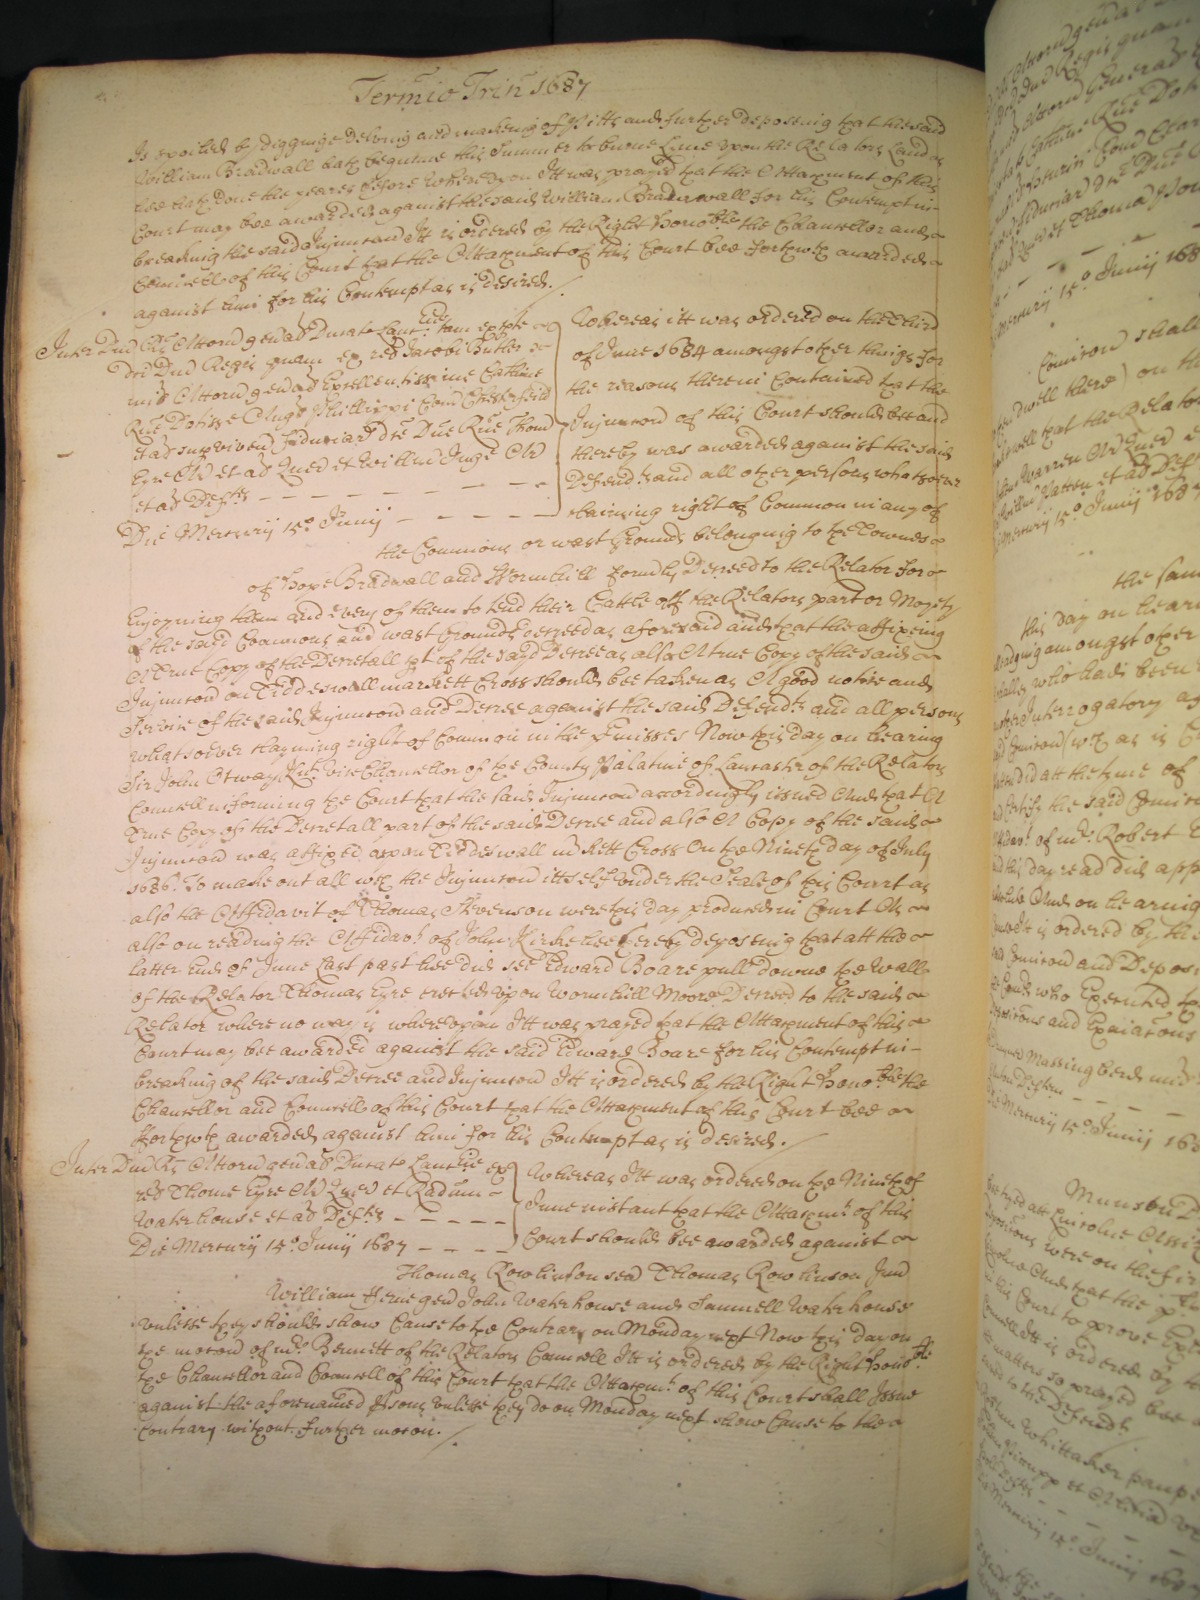 Termio Trin 1687
Is spoiled by digginge Delving and makeing of Pitts and further deposeing that the said
William Bradwall hath begunne this Summer to burne Lime upon the Relators Land as
hee hath done the yeares before Whereupon Itt was prayed that the Attachment of this
Court may bee awarded against the said William Bradwall for his Contempt in
breaking the said Injuncion Itt is ordered by the Right Honoble the Chancellor and
Councell of this Court that the Attachment of this Court bee forthwith awarded
against him for his Contempt as is desired.
Inter Dnu Rs Attorn genal Ducat Lancrie tam ex pte
dci Dni Regis quam ex rel Jacobi Butler
nup Attorn genal Excellentissime Catherine
Rne Dotisse Angl Phillippi Com Chesterfeild
et al superviven Fiduciar dce Dne Rne Thom
Eyre Ar et al Quer et Willm Inge Ar
et al Defts
Die Mercurij 15o Junij
Whereas itt was ordered on the Third
of June 1684 amongst other things for
the reasons therein Contained that the
Injuncion of this Court should bee and
thereby was awarded against the said
Defendts and all other persons whatsoever
claiming right of Common in any of
the Commons or wast Grounds belonging to the Townes
of Hope Bradwall and Wormhill formerly Decreed to the Relator for
Enjoyning them and every of them to tend their Cattle off the Relators part or Moyety
of the said Commons and wast Grounds decreed as aforesaid and that the affixeing
A True Copy of the Decretall pt of the sayd Decree as also A true Copy of the said
Injuncion on Tiddeswall markett Cross should bee taken as A good notice and
Service of the said Injuncion and Decree against the said Defendts and all persons
whatsoever clayming right of Common in the Pmisses Now this day on hearing
Sir John Otway Knt vice Chancellor of the County Palatine of Lancaster of the Relators
Councell informing the Court that the said Injuncion accordingly issued And that A
True Copy of the Decretall part of the said Decree and also A Copy of the said
Injuncion was affixed upon Tiddeswall mkett Cross On the Ninth day of July
1686. To make out all wch the Injuncion itt selfe under the Seale of this Court as
also the Affidavit of Thomas Stevenson were this day produced in Court As
also on reading the Affidavt of John Kirke hee thereby deposeing that att the
latter End of June Last past hee did see Edward Boare pull downe the Walls
of the Relator Thomas Eyre erected upon Wormhill Moore Decreed to the said
Relator where no way is whereupon Itt was prayed that the Attachment of this
Court may bee awarded against the said Edward Boare for his Contempt in
breaking of the said Decree and Injuncion Itt is ordered by the Right Honoble the
Chancellor and Councell of this Court that the Attachment of this Court bee
Forthwth awarded against him for his Contempt as is desired.
Inter Dnu Rs Attorn genal Ducat Lancrie ex
rel Thome Eyre Ar Quer et Radum
Waterhouse et al Defts
Die Mercurij 15o Junij 1687
Whereas Itt was ordered on the Ninth of
June instant that the Attachmt of this
Court should bee awarded against
Thomas Rowlinson sen Thomas Rowlinson Jun
William Ferne gen John Waterhouse and Samuell Waterhouse
unlesse they should show Cause to the Contrary on Monday next Now this day on
the mocon of mr Bennett of the Relators Councell Itt is ordered by the Right Honoble
the Chancellor and Councell of this Court that the Attachmt of this Court shall Issue
against the aforenamed Psons unlesse they do on Monday next show Cause to the
contrary without further mocon.